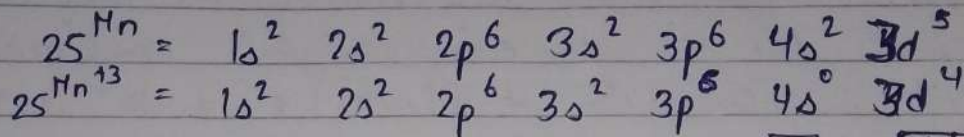 25 Mn = 1s² 2s² 2p⁶ 3s² 3p⁶ 4s² 3d⁵
25 Mn⁺³ = 1s² 2s² 2p⁶ 3s² 3p⁶ 4s⁰ 3d⁴